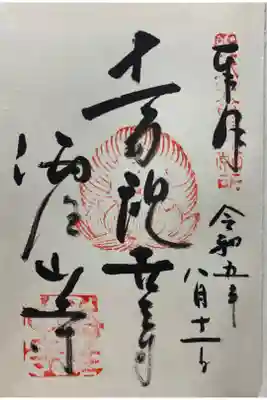 奉拝
令和五年
八月十一日
十一面観世音
海住山寺